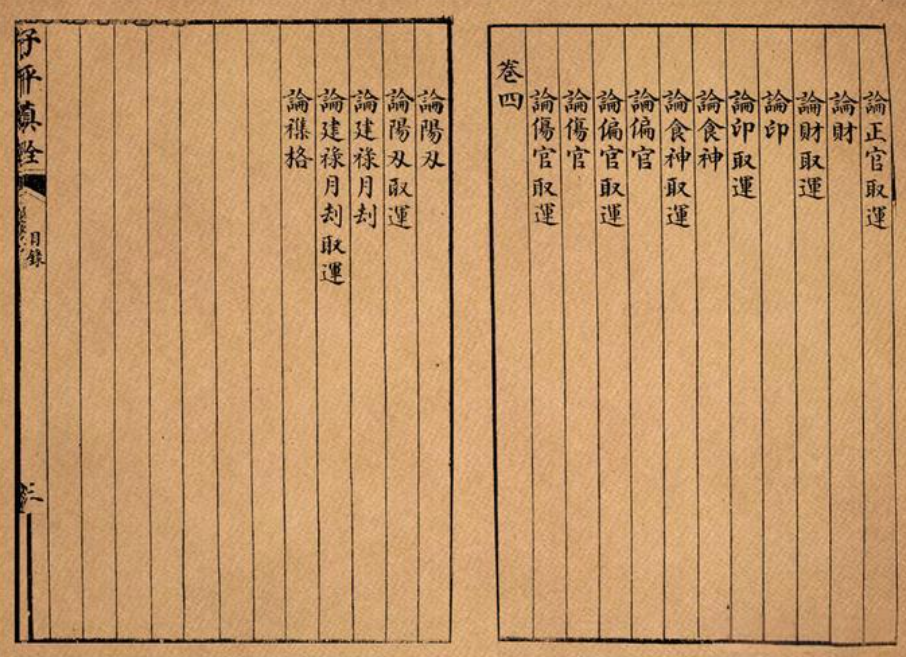 論正官取運
論財
論財取運
論印
論印取運
論食神
論食神取運
論偏官
論偏官取運
論傷官
論傷官取運
卷四
論陽刃
論陽刃取運
論建祿月刦
論建祿月刦取運
論襍格
子平真詮
目錄
三